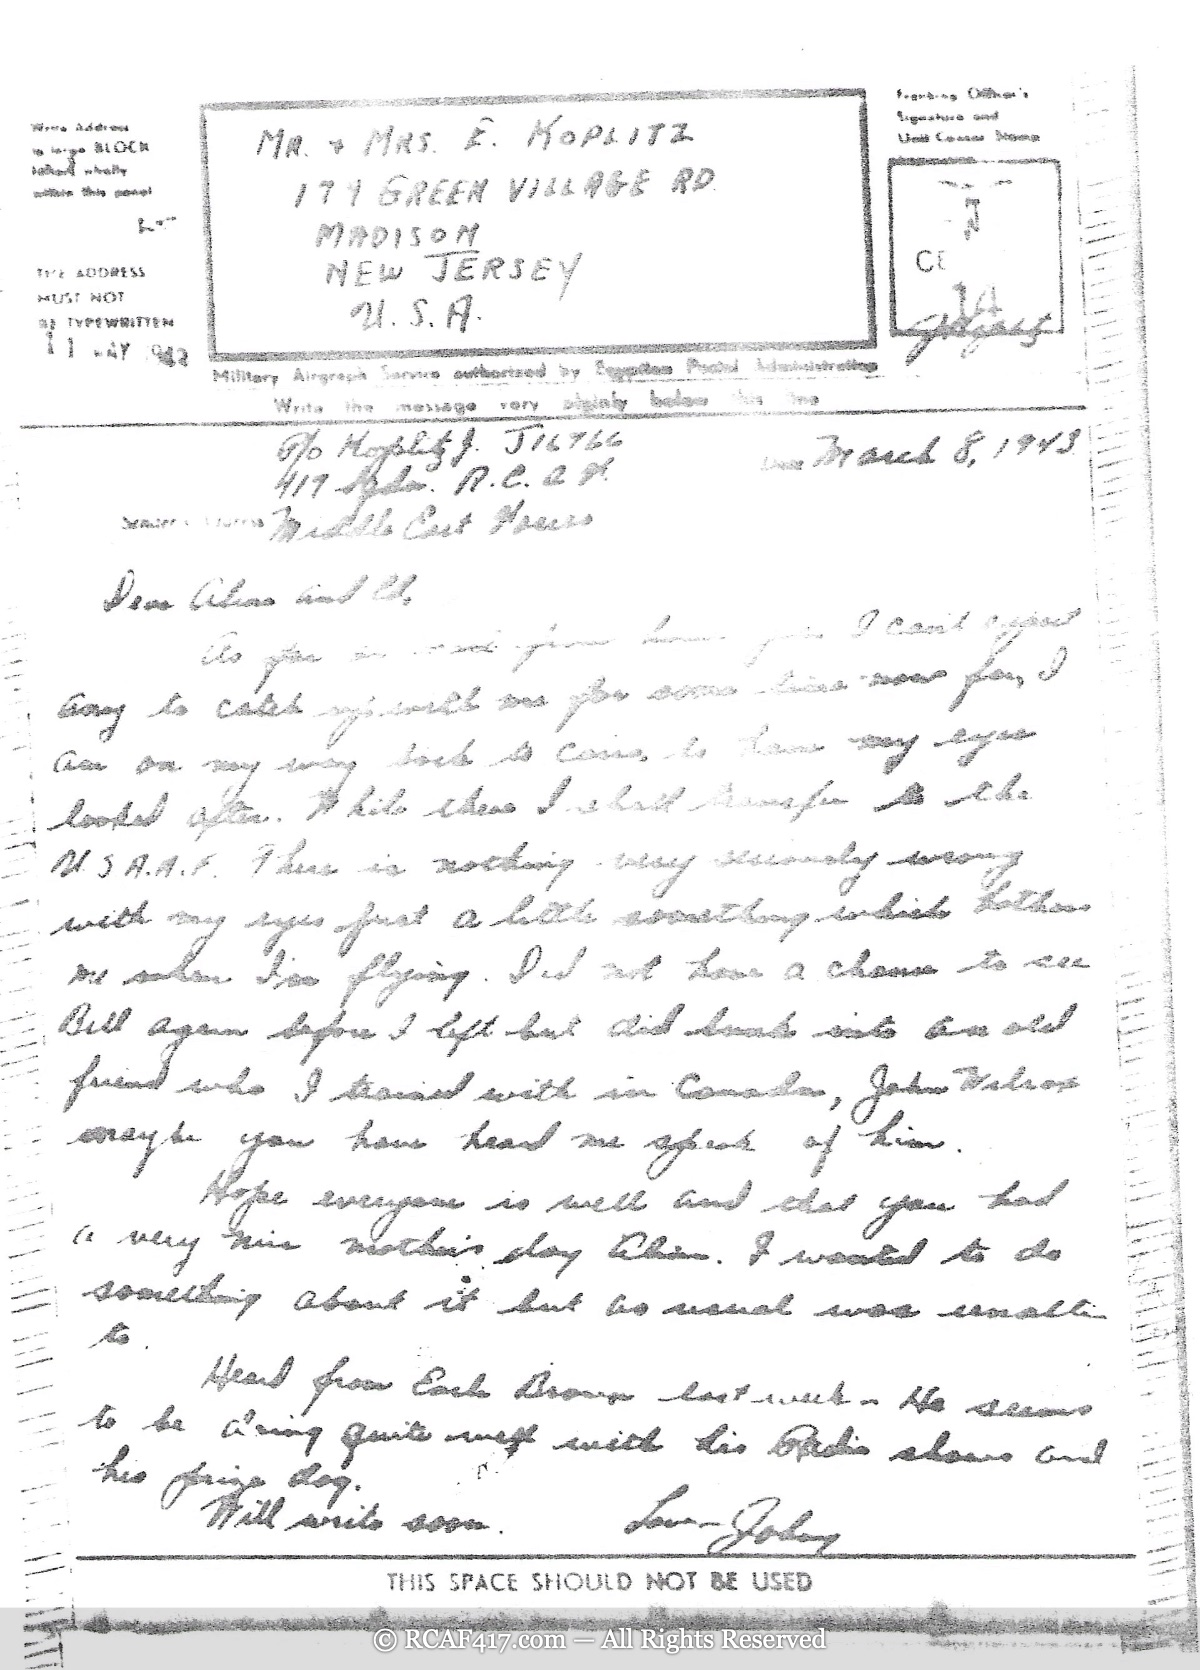 Write Address
in large BLOCK
letters wholly
within this panel
THE ADDRESS
MUST NOT
BE TYPEWRITTEN
11 MAY 1943
MR. + MRS. E. KOPLITZ
GREEN VILLAGE RD
MADISON
NEW JERSEY
U.S.A.
Franking Officer's
Signature and
Unit Censor Stamp
Military Airgraph Service authorised by Egyptian Postal Administration
Write the message very plainly below this line
P/O Koplitz J. J16766
417 Sqdn. R.C.A.F.
Middle East Forces
March 8, 1943
Dear and Ed,
As far as from home I can't expect
any to catch up with me for some time now for, I
am on my way back to Cairo to have my eyes
looked after. While there I shall transfer to the
U.S.A.A.F. There is nothing very seriously wrong
with my eyes just a little something which bothers
me when I'm flying. Did not have a chance to see
Bill again before I left but did bunk into an old
friend who I trained with in Canada, John Wilson
maybe you have heard me speak of him.
Hope everyone is well and that you had
a very nice mother's day. I wanted to do
something about it but as usual was unable
to.
Heard from Earle Brown last week - He seems
to be doing quite well with his Radio shows and
his prize dog.
Will write soon. Love - Johny
THIS SPACE SHOULD NOT BE USED
© RCAF417.com — All Rights Reserved